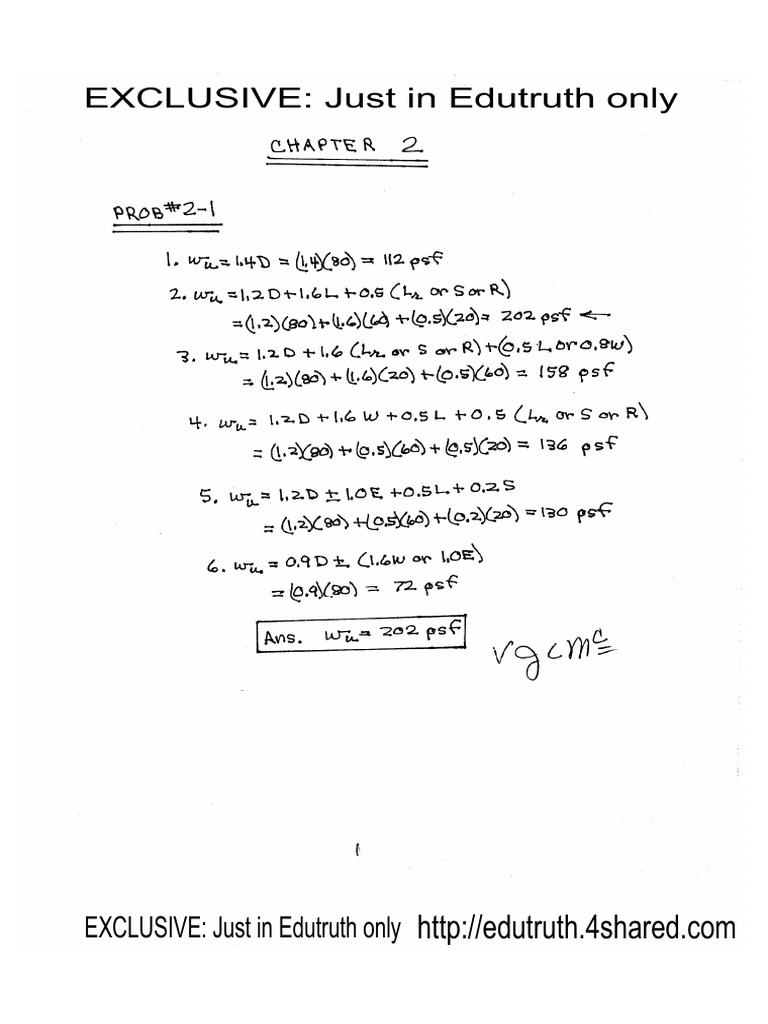 EXCLUSIVE: Just in Edutruth only
CHAPTER 2
PROB#2-1
1. wu = 1.4D = (1.4)(80) = 112 psf
2. wu = 1.2D + 1.6L + 0.5 (Lr or S or R)
= (1.2)(80) + (1.6)(60) + (0.5)(20) = 202 psf ←
3. wu = 1.2D + 1.6 (Lr or S or R) + (0.5L or 0.8W)
= (1.2)(80) + (1.6)(20) + (0.5)(60) = 158 psf
4. wu = 1.2D + 1.6W + 0.5L + 0.5 (Lr or S or R)
= (1.2)(80) + (0.5)(60) + (0.5)(20) = 136 psf
5. wu = 1.2D ± 1.0E + 0.5L + 0.2S
= (1.2)(80) + (0.5)(60) + (0.2)(20) = 130 psf
6. wu = 0.9D ± (1.6W or 1.0E)
= (0.9)(80) = 72 psf
Ans. wu = 202 psf
1
EXCLUSIVE: Just in Edutruth only http://edutruth.4shared.com